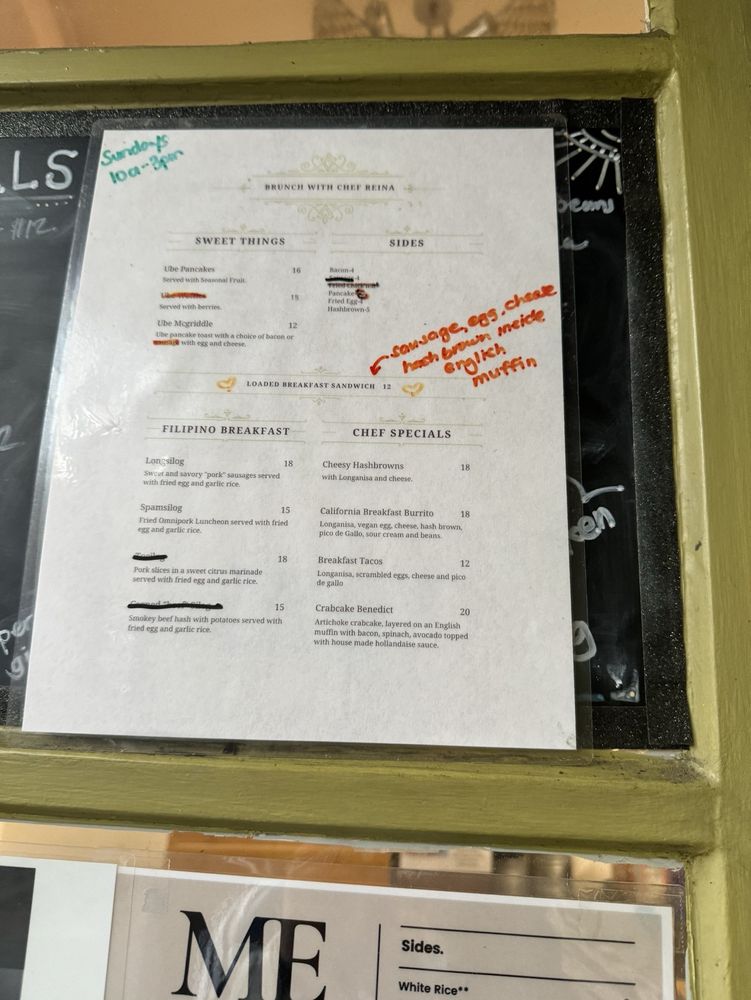 LS
#12
Sundays
10a-3pm
BRUNCH WITH CHEF REINA
SWEET THINGS
Ube Pancakes 16
Served with Seasonal Fruit.
15
Served with berries.
Ube Mcgriddle 12
Ube pancake toast with a choice of bacon or
with egg and cheese.
SIDES
Bacon-4
-4
Pancake
Fried Egg-4
Hashbrown-5
sausage, egg, cheese
hash brown inside
english
muffin
LOADED BREAKFAST SANDWICH 12
FILIPINO BREAKFAST
Longsilog 18
Sweet and savory "pork" sausages served
with fried egg and garlic rice.
Spamsilog 15
Fried Omnipork Luncheon served with fried
egg and garlic rice.
18
Pork slices in a sweet citrus marinade
served with fried egg and garlic rice.
15
Smokey beef hash with potatoes served with
fried egg and garlic rice.
CHEF SPECIALS
Cheesy Hashbrowns 18
with Longanisa and cheese.
California Breakfast Burrito 18
Longanisa, vegan egg, cheese, hash brown,
pico de Gallo, sour cream and beans.
Breakfast Tacos 12
Longanisa, scrambled eggs, cheese and pico
de gallo
Crabcake Benedict 20
Artichoke crabcake, layered on an English
muffin with bacon, spinach, avocado topped
with house made hollandaise sauce.
ME
Sides.
White Rice**